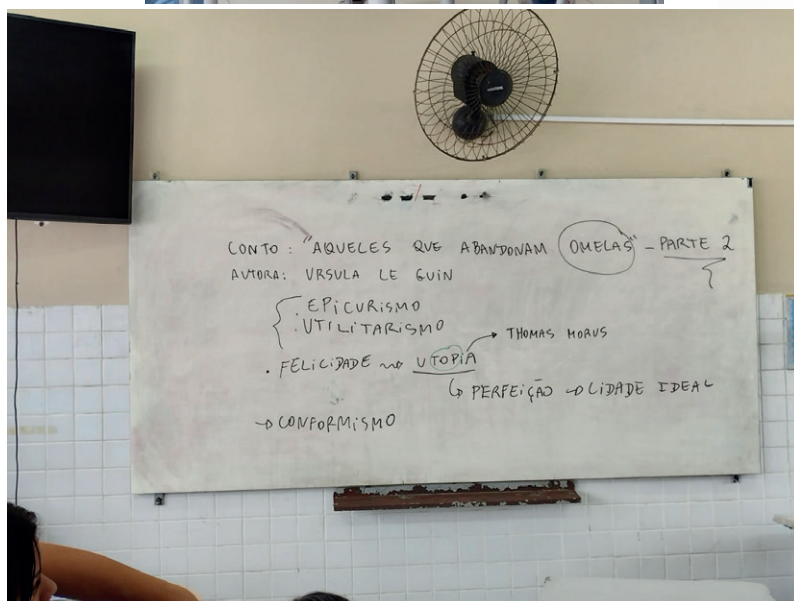 CONTO: "AQUELES QUE ABANDONAM OMELAS" - PARTE 2
AUTORA: URSULA LE GUIN
. EPICURISMO
. UTILITARISMO
. FELICIDADE → UTOPIA → THOMAS MORUS
↳ PERFEIÇÃO → CIDADE IDEAL
→ CONFORMISMO